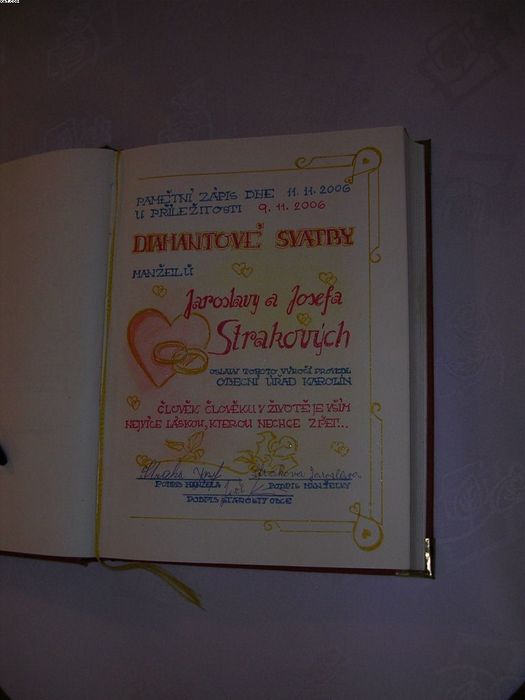 PAMĚTNÍ ZÁPIS DNE 11.11.2006
U PŘÍLEŽITOSTI 9.11.2006
DIAMANTOVÉ SVATBY
MANŽELŮ
Jaroslavy a Josefa
Strakových
OSLAVU TOHOTO VÝROČÍ PROVEDL
OBECNÍ ÚŘAD KAROLÍN
ČLOVĚK ČLOVĚKU V ŽIVOTĚ JE VŠÍM
NEJVÍCE LÁSKOU, KTEROU NECHCE ZPĚT...
Straka Josef Strakova Jaroslava
PODPIS MANŽELA PODPIS MANŽELKY
PODPIS STAROSTY OBCE